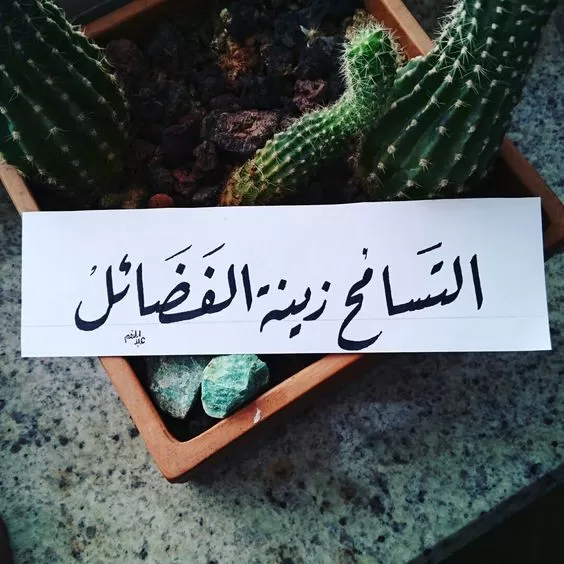 التَسامُح زينة الفَضَائلُ
عبدالمنعم